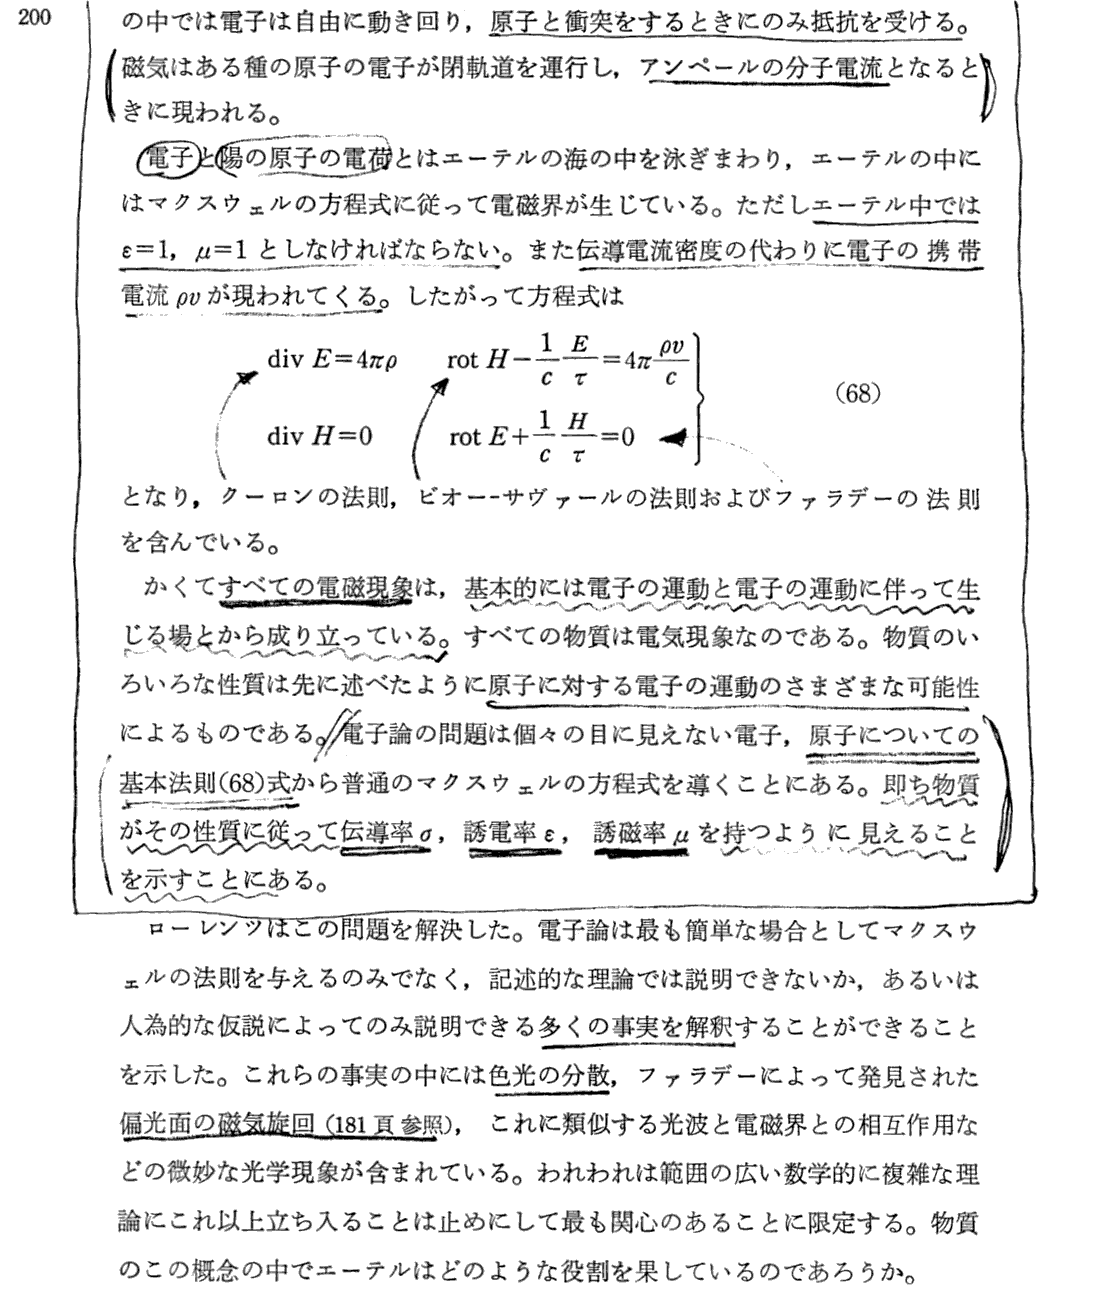 200
の中では電子は自由に動き回り，原子と衝突をするときにのみ抵抗を受ける。
磁気はある種の原子の電子が閉軌道を運行し，アンペールの分子電流となると
きに現われる。
電子と陽の原子の電荷とはエーテルの海の中を泳ぎまわり，エーテルの中に
はマクスウェルの方程式に従って電磁界が生じている。ただしエーテル中では
ε=1，μ=1 としなければならない。また伝導電流密度の代わりに電子の携帯
電流 ρv が現われてくる。したがって方程式は
div E=4πρ rot H−1/c E/τ=4π ρv/c
(68)
div H=0 rot E+1/c H/τ=0
となり，クーロンの法則，ビオー-サヴァールの法則およびファラデーの法則
を含んでいる。
かくてすべての電磁現象は，基本的には電子の運動と電子の運動に伴って生
じる場とから成り立っている。すべての物質は電気現象なのである。物質のい
ろいろな性質は先に述べたように原子に対する電子の運動のさまざまな可能性
によるものである。電子論の問題は個々の目に見えない電子，原子についての
基本法則(68)式から普通のマクスウェルの方程式を導くことにある。即ち物質
がその性質に従って伝導率 σ，誘電率 ε，誘磁率 μ を持つように見えること
を示すことにある。
ローレンツはこの問題を解決した。電子論は最も簡単な場合としてマクスウ
ェルの法則を与えるのみでなく，記述的な理論では説明できないか，あるいは
人為的な仮説によってのみ説明できる多くの事実を解釈することができること
を示した。これらの事実の中には色光の分散，ファラデーによって発見された
偏光面の磁気旋回 (181 頁 参照)， これに類似する光波と電磁界との相互作用な
どの微妙な光学現象が含まれている。われわれは範囲の広い数学的に複雑な理
論にこれ以上立ち入ることは止めにして最も関心のあることに限定する。物質
のこの概念の中でエーテルはどのような役割を果しているのであろうか。